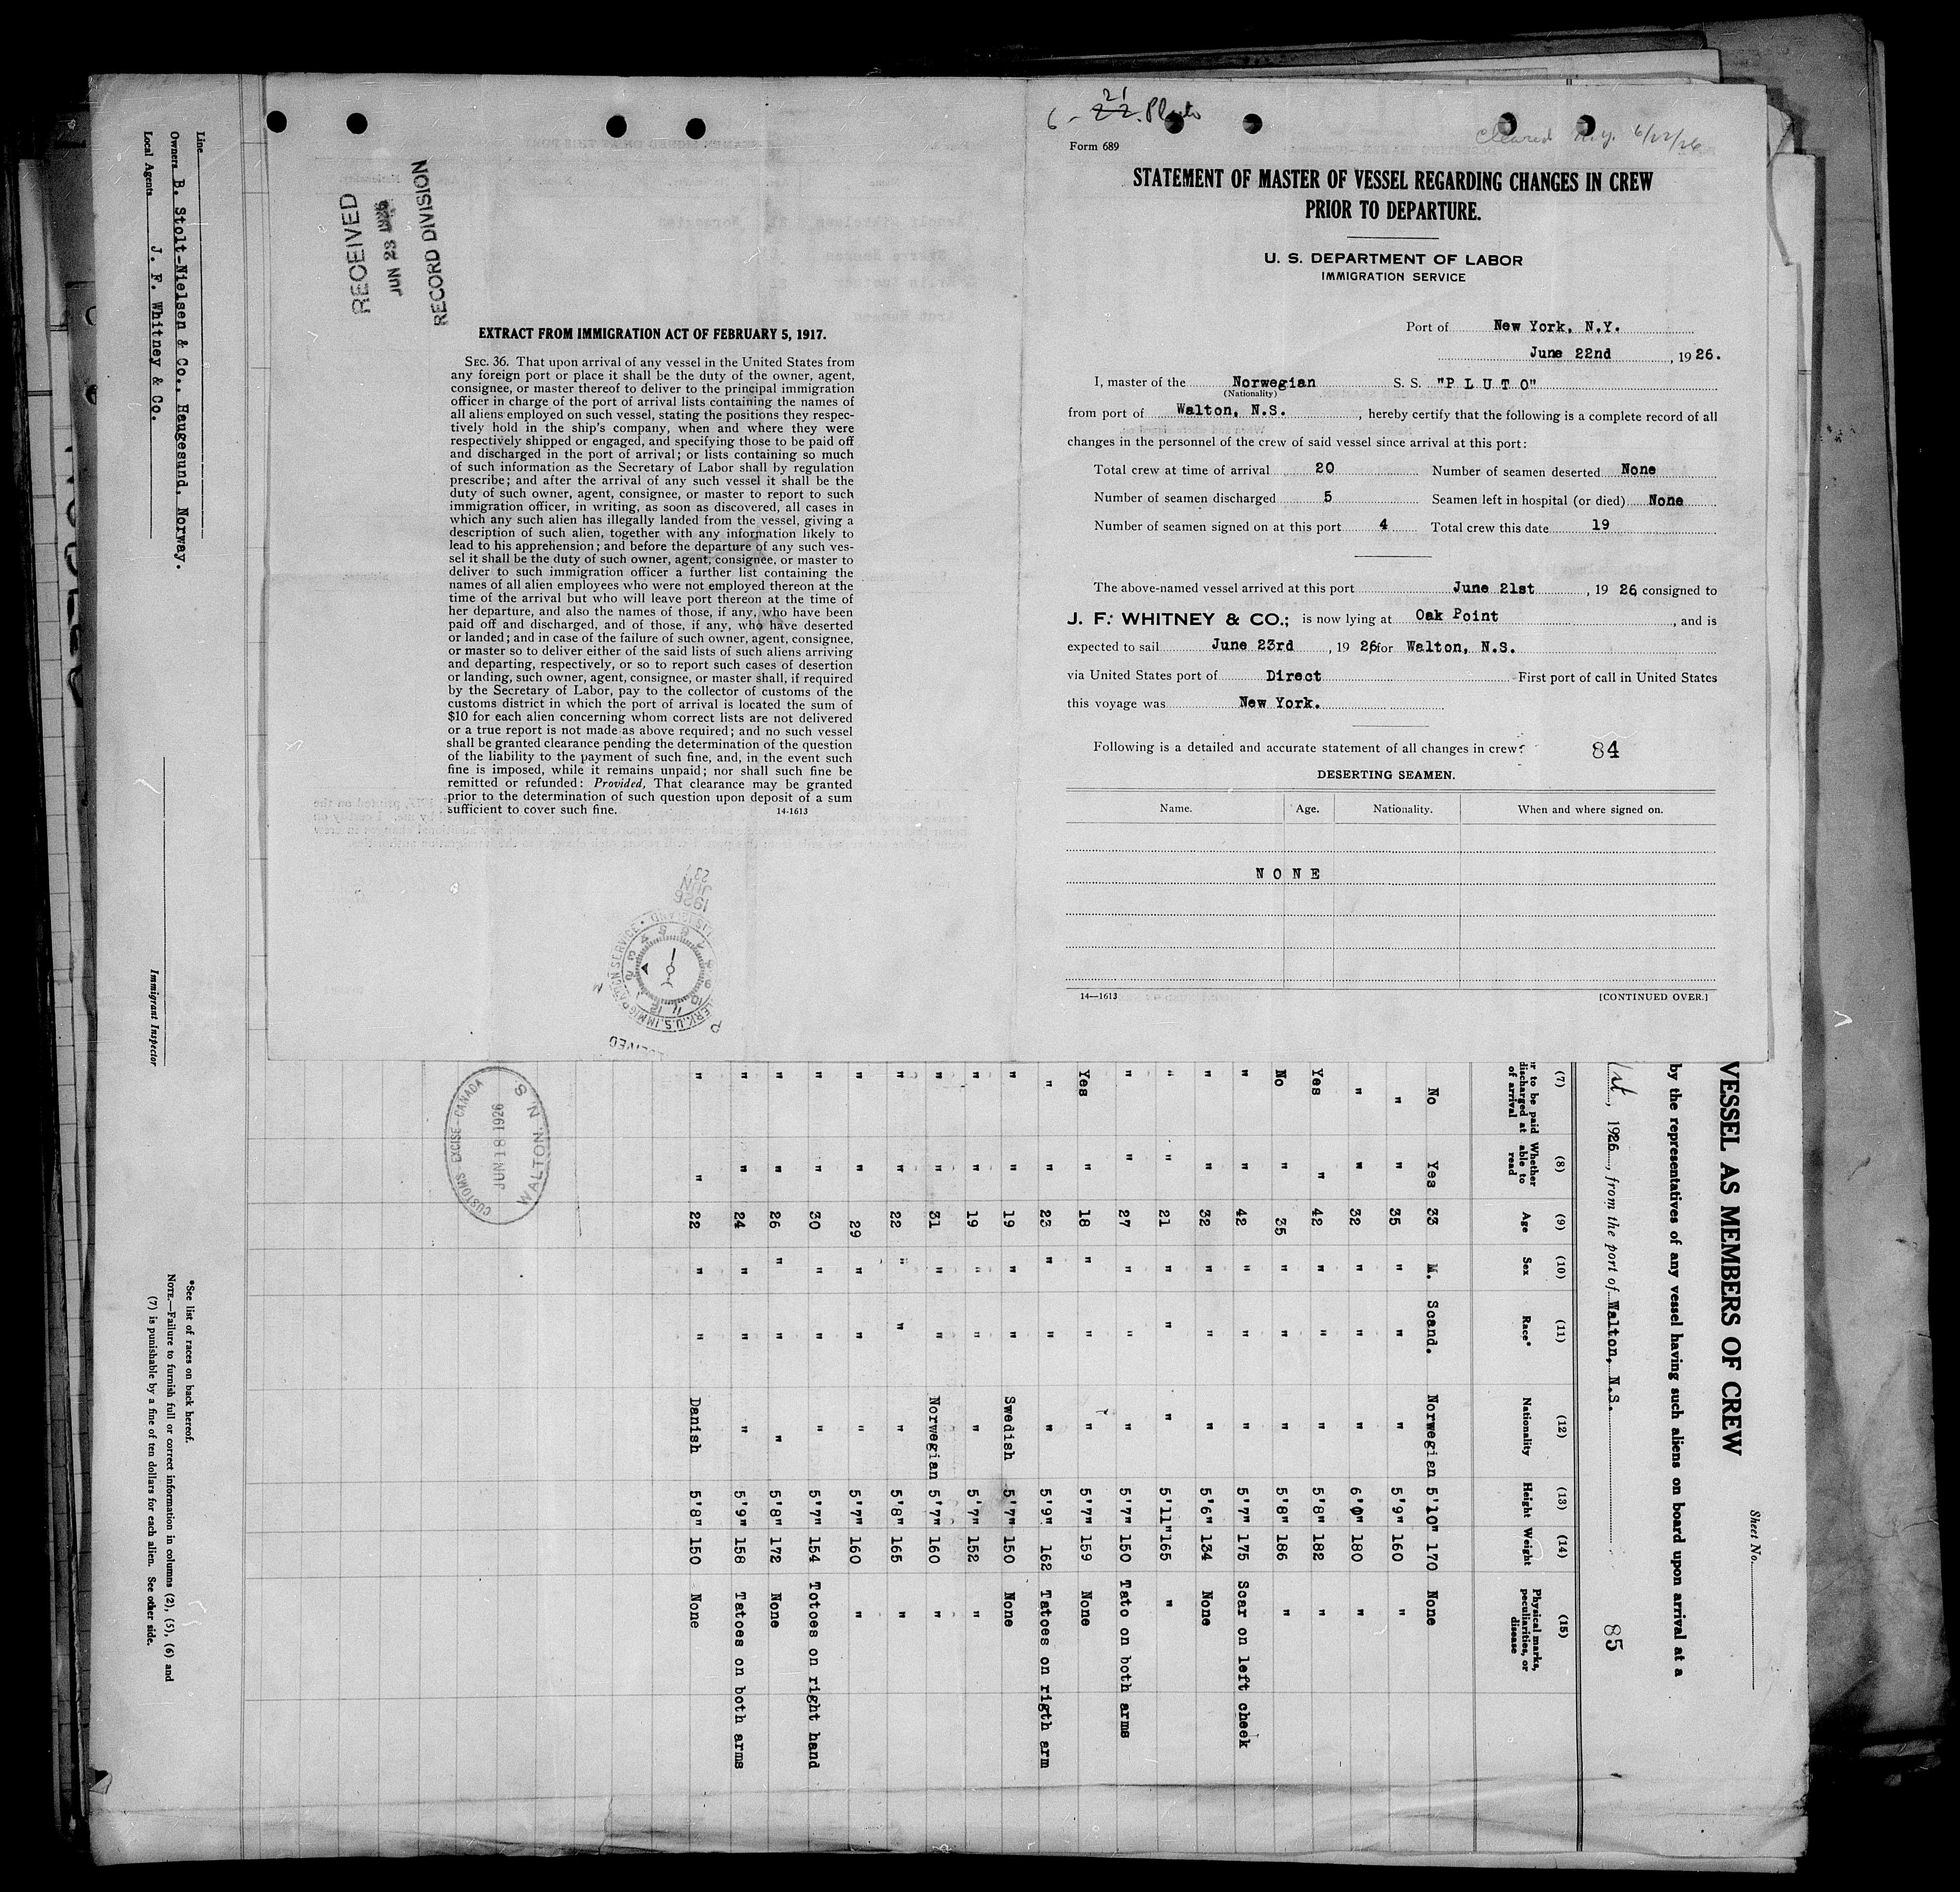 6 - 22. Pluto
21
Cleared N.Y. 6/22/26
Form 689
STATEMENT OF MASTER OF VESSEL REGARDING CHANGES IN CREW
PRIOR TO DEPARTURE.
U. S. DEPARTMENT OF LABOR
IMMIGRATION SERVICE
Port of New York, N.Y.
June 22nd, 1926.
I, master of the Norwegian S. S. "P L U T O"
(Nationality)
from port of Walton, N.S., hereby certify that the following is a complete record of all
changes in the personnel of the crew of said vessel since arrival at this port:
Total crew at time of arrival 20 Number of seamen deserted None
Number of seamen discharged 5 Seamen left in hospital (or died) None
Number of seamen signed on at this port 4 Total crew this date 19
The above-named vessel arrived at this port June 21st, 19 26 consigned to
J. F. WHITNEY & CO.; is now lying at Oak Point, and is
expected to sail June 23rd, 19 26 for Walton, N.S.
via United States port of Direct First port of call in United States
this voyage was New York.
Following is a detailed and accurate statement of all changes in crew: 84
DESERTING SEAMEN.
Name. Age. Nationality. When and where signed on.
N O N E
14—1613 [CONTINUED OVER.]
RECEIVED
JUN 23 1926
RECORD DIVISION
EXTRACT FROM IMMIGRATION ACT OF FEBRUARY 5, 1917.
SEC. 36. That upon arrival of any vessel in the United States from
any foreign port or place it shall be the duty of the owner, agent,
consignee, or master thereof to deliver to the principal immigration
officer in charge of the port of arrival lists containing the names of
all aliens employed on such vessel, stating the positions they respec-
tively hold in the ship's company, when and where they were
respectively shipped or engaged, and specifying those to be paid off
and discharged in the port of arrival; or lists containing so much
of such information as the Secretary of Labor shall by regulation
prescribe; and after the arrival of any such vessel it shall be the
duty of such owner, agent, consignee, or master to report to such
immigration officer, in writing, as soon as discovered, all cases in
which any such alien has illegally landed from the vessel, giving a
description of such alien, together with any information likely to
lead to his apprehension; and before the departure of any such ves-
sel it shall be the duty of such owner, agent, consignee, or master to
deliver to such immigration officer a further list containing the
names of all alien employees who were not employed thereon at the
time of the arrival but who will leave port thereon at the time of
her departure, and also the names of those, if any, who have been
paid off and discharged, and of those, if any, who have deserted
or landed; and in case of the failure of such owner, agent, consignee,
or master so to deliver either of the said lists of such aliens arriving
and departing, respectively, or so to report such cases of desertion
or landing, such owner, agent, consignee, or master shall, if required
by the Secretary of Labor, pay to the collector of customs of the
customs district in which the port of arrival is located the sum of
$10 for each alien concerning whom correct lists are not delivered
or a true report is not made as above required; and no such vessel
shall be granted clearance pending the determination of the question
of the liability to the payment of such fine, and, in the event such
fine is imposed, while it remains unpaid; nor shall such fine be
remitted or refunded: Provided, That clearance may be granted
prior to the determination of such question upon deposit of a sum
sufficient to cover such fine. 14-1613
1926 JUN 23
Sheet No.
VESSEL AS MEMBERS OF CREW
by the representatives of any vessel having such aliens on board upon arrival at a
1st, 1926, from the port of Walton, N.S. 85
(7) (8) (9) (10) (11) (12) (13) (14) (15)
r to be paid discharged at of arrival | Whether able to read | Age | Sex | Race* | Nationality | Height | Weight | Physical marks, peculiarities, or disease
No Yes 33 M. Scand. Norwegian 5'10" 170 None
" " 35 " " " 5'9" 160 "
" " 32 " " " 6'0" 180 "
Yes " 42 " " " 5'8" 182 "
No " 35 " " " 5'8" 186 "
" " 42 " " " 5'7" 175 Scar on left cheek
" " 32 " " " 5'6" 134 None
" " 21 " " " 5'11" 165 "
" " 27 " " " 5'7" 150 Tato on both arms
Yes " 18 " " " 5'7" 159 None
" " 23 " " " 5'9" 162 Tatoes on rigth arm
" " 19 " " Swedish 5'7" 150 None
" " 19 " " " 5'7" 152 "
" " 31 " " Norwegian 5'7" 160 "
" " 22 " " " 5'8" 165 "
" " 29 " " " 5'7" 160 "
" " 30 " " " 5'7" 154 Totoes on right hand
" " 26 " " " 5'8" 172 None
" " 24 " " " 5'9" 158 Tatoes on both arms
" " 22 " " Danish 5'8" 150 None
CUSTOMS - EXCISE - CANADA
JUN 18 1926
WALTON, N. S.
Line
Owners B. Stolt-Nielsen & Co., Haugesund, Norway.
Local Agents J. F. Whitney & Co.
Immigrant Inspector
*See list of races on back hereof.
NOTE.—Failure to furnish full or correct information in columns (2), (5), (6) and
(7) is punishable by a fine of ten dollars for each alien. See other side.